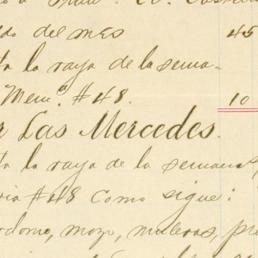 do del mes 45
la raya de la sema-
Mem.ª #48. 10
Las Mercedes.
ta la raya de la semana
ria #48 como sigue:
rdomo, mozo, muleros,